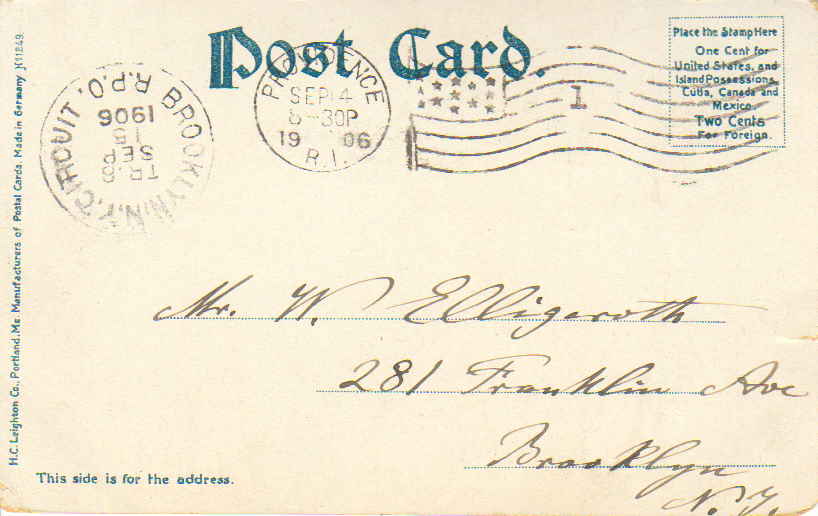 Post Card.
Place the Stamp Here
One Cent for
United States, and
Island Possessions,
Cuba, Canada and
Mexico.
Two Cents
For Foreign.
PROVIDENCE
SEP 14
8-30P
19 06
R.I.
1
BROOKLYN, N.Y. CIRCUIT, R.P.O.
TR.8
SEP
15
1906
Mr. W. Elligeroth
281 Franklin Ave
Brooklyn
N.Y.
This side is for the address.
H.C. Leighton Co., Portland, Me. Manufacturers of Postal Cards Made in Germany